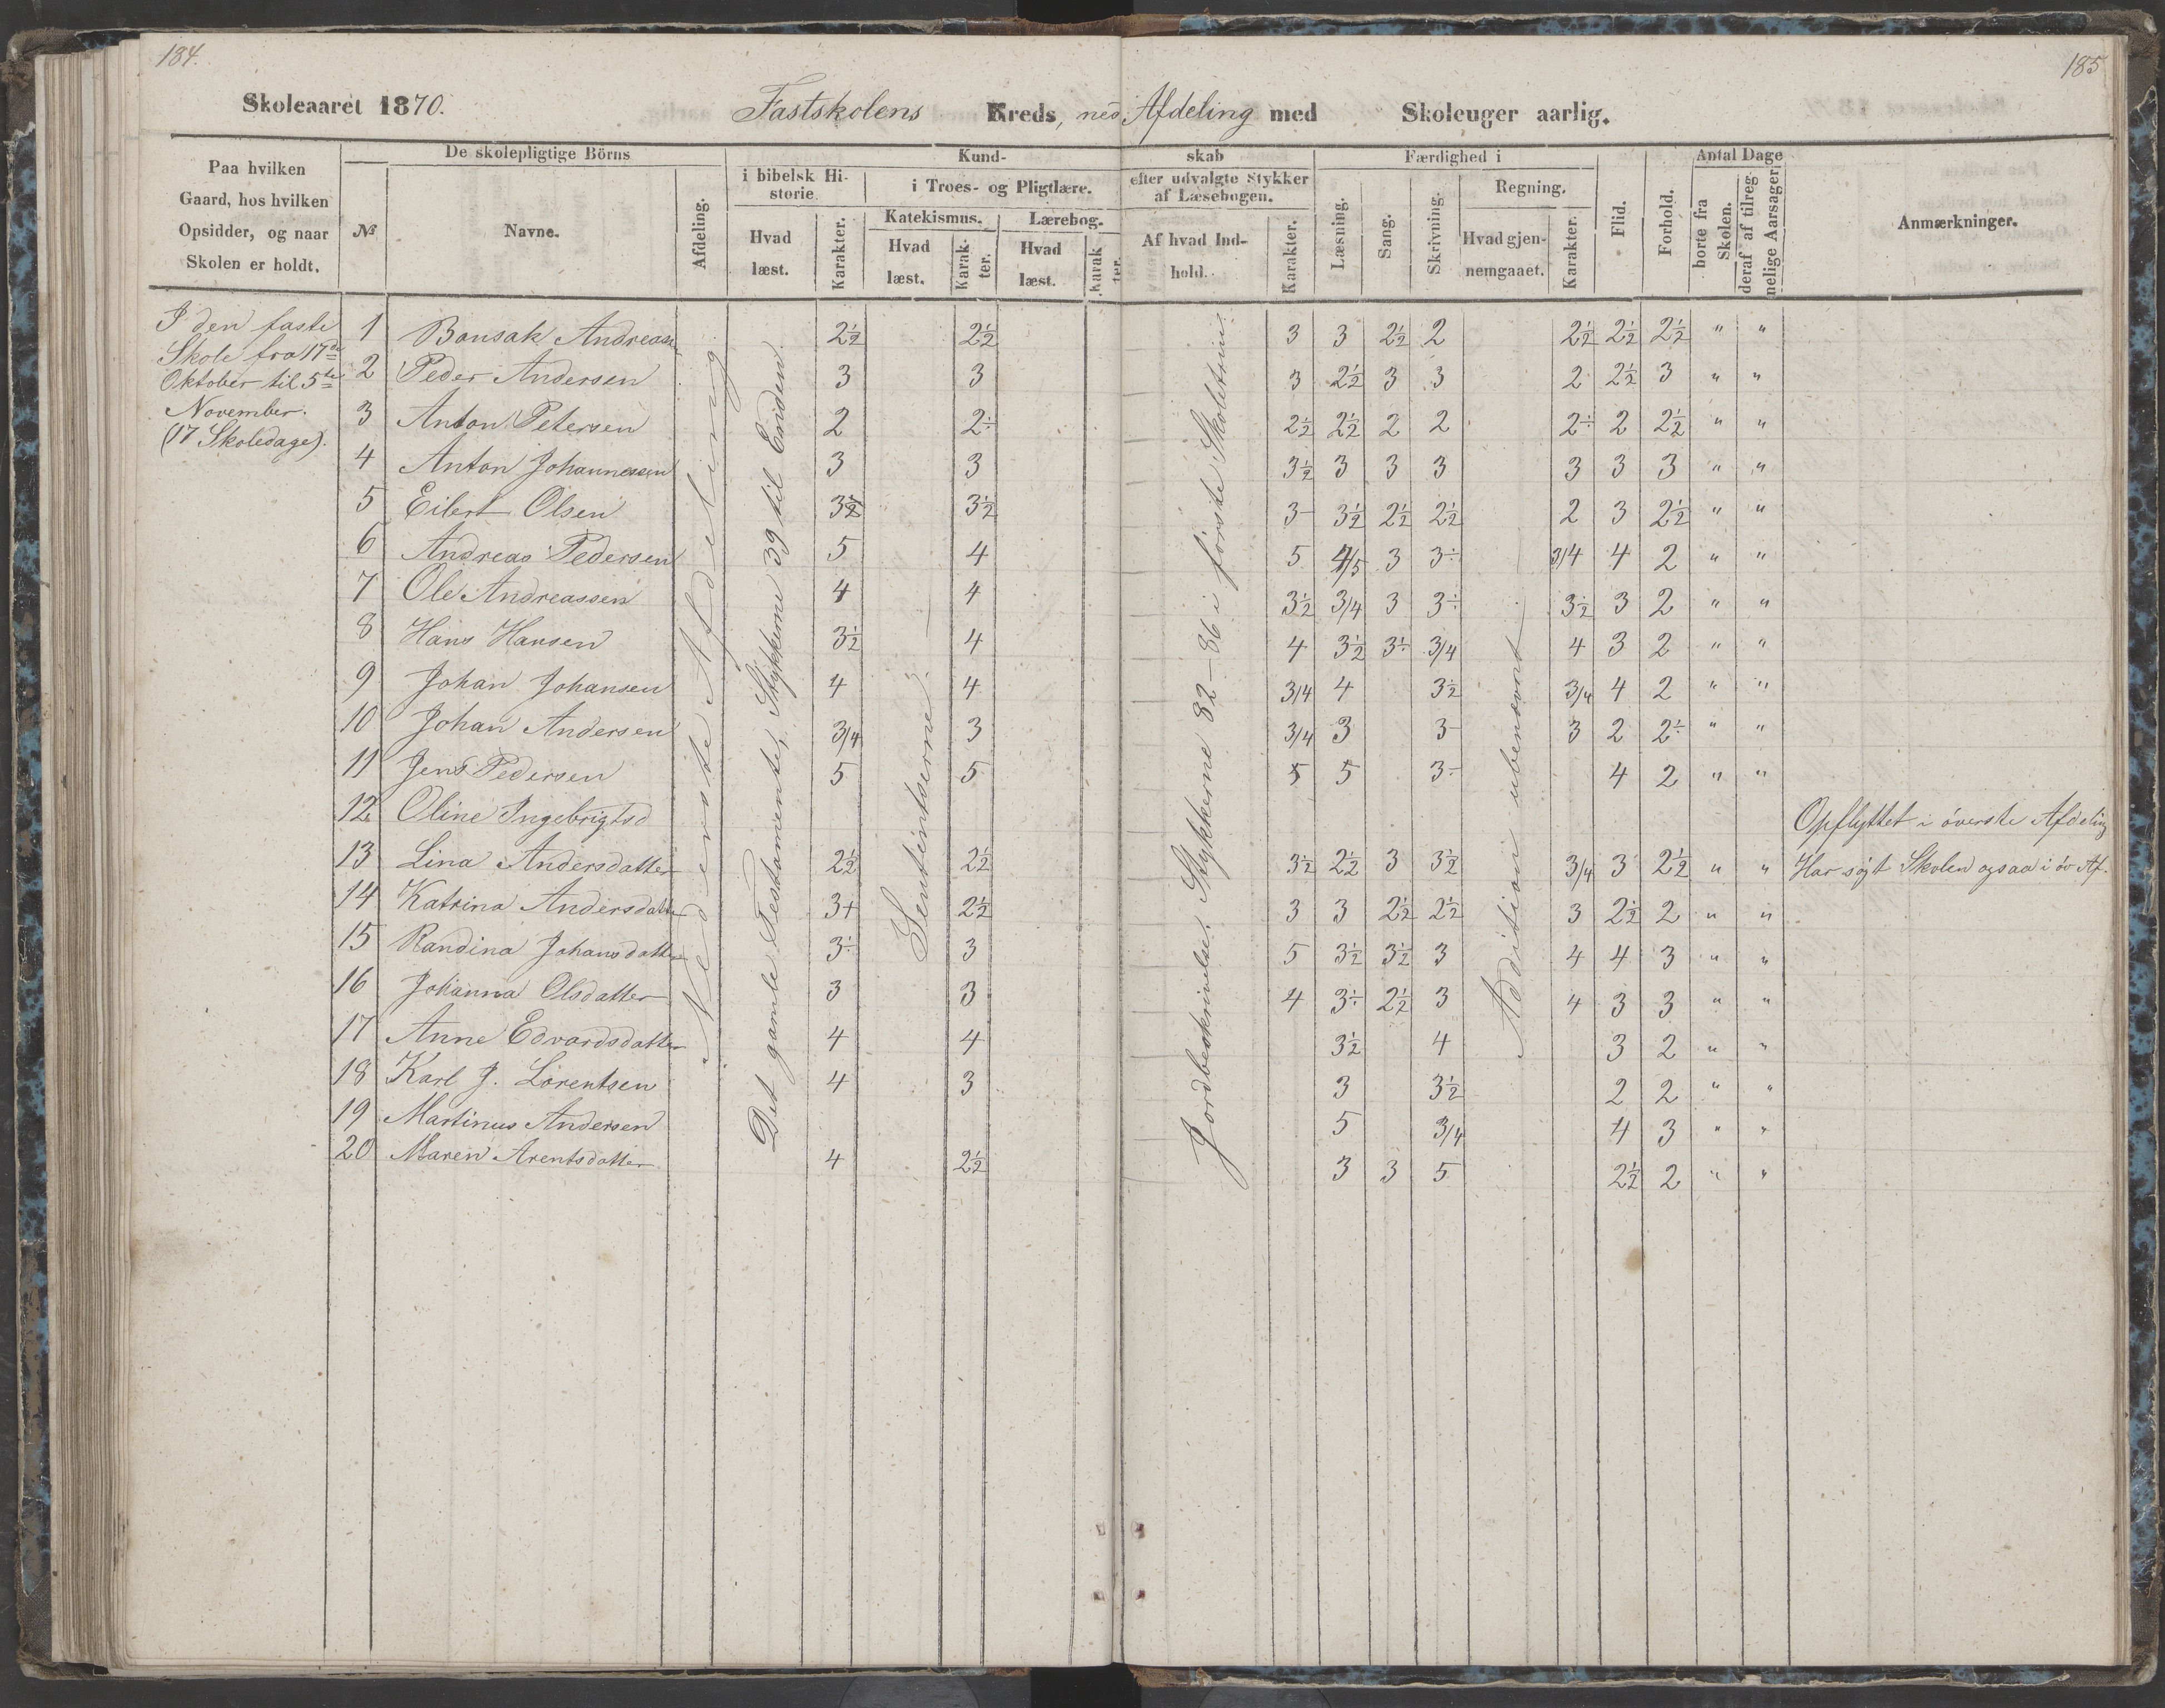 184.
185
Skoleaaret 1870. Fastskolens Kreds, ned Afdeling med Skoleuger aarlig.
Paa hvilken Gaard, hos hvilken Opsidder, og naar Skolen er holdt.
De skolepligtige Börns
№ Navne. Afdeling.
Kundskab
i bibelsk Historie
Hvad læst. Karakter.
i Troes- og Pligtlære.
Katekismus. Hvad læst. Karakter.
Lærebog. Hvad læst. Karakter.
efter udvalgte Stykker af Læsebogen.
Af hvad Indhold. Karakter.
Færdighed i
Læsning. Sang. Skrivning.
Regning. Hvad gjennemgaaet. Karakter.
Flid. Forhold.
Antal Dage
borte fra Skolen. deraf af tilregnelige Aarsager.
Anmærkninger.
I den faste
Skole fra 17de
Oktober til 5te
November.
(17 Skoledage).
Nederste Afdeling
Det gamle Testamente, Stykkerne 39 til Enden.
Sentintserne
Jordbeskrivelse. Stykkerne 32-86 i förste Skoletrin.
Addition ubenævnt
1 Bonsak Andreass 2½ 2½ 3 3 2½ 2 2½ 2½ 2½ " "
2 Peder Andersen 3 3 3 2½ 3 3 2 2½ 3 " "
3 Anton Petersen 2 2÷ 2½ 2½ 2 2 2÷ 2 2½ " "
4 Anton Johannessen 3 3 3½ 3 3 3 3 3 3 " "
5 Eilert Olsen 3½ 3½ 3- 3½ 2½ 2½ 2 3 2½ " "
6 Andreas Pedersen 5 4 5 4/5 3 3÷ 3/4 4 2 " "
7 Ole Andreassen 4 4 3½ 3/4 3 3÷ 3½ 3 2 " "
8 Hans Hansen 3½ 4 4 3½ 3÷ 3/4 4 3 2 " "
9 Johan Johansen 4 4 3/4 4 3½ 3/4 4 2 " "
10 Johan Andersen 3/4 3 3/4 3 3- 3 2 2÷ " "
11 Jens Pedersen 5 5 5 5 3÷ 4 2 " "
12 Oline Ingebrigtsd Opflyttet i överste Afdeling
13 Lina Andersdatter 2½ 2½ 3½ 2½ 3 3½ 3/4 3 2½ " " Har sögt Skolen ogsaa i öv Af.
14 Katrina Andersdatter 3+ 2½ 3 3 2½ 2½ 3 2½ 2 " "
15 Randina Johansdatter 3÷ 3 5 3½ 3½ 3 4 4 3 " "
16 Johanna Olsdatter 3 3 4 3÷ 2½ 3 4 3 3 " "
17 Anne Edvardsdatter 4 4 3½ 4 3 2 " "
18 Karl J. Lorentsen 4 3 3 3½ 2 2 " "
19 Martinus Andersen 5 3/4 4 3 " "
20 Maren Arentsdatter 4 2½ 3 3 5 2½ 2 " "